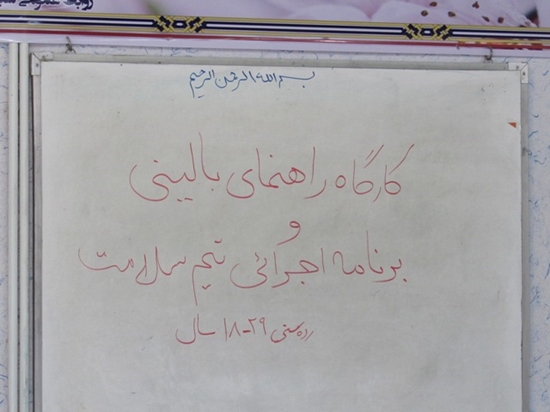 بسم الله الرحمن الرحیم
کارگاه راهنمای بالینی
و
برنامه اجرائی تیم سلامت
رده سنی ۲۹-۱۸ سال